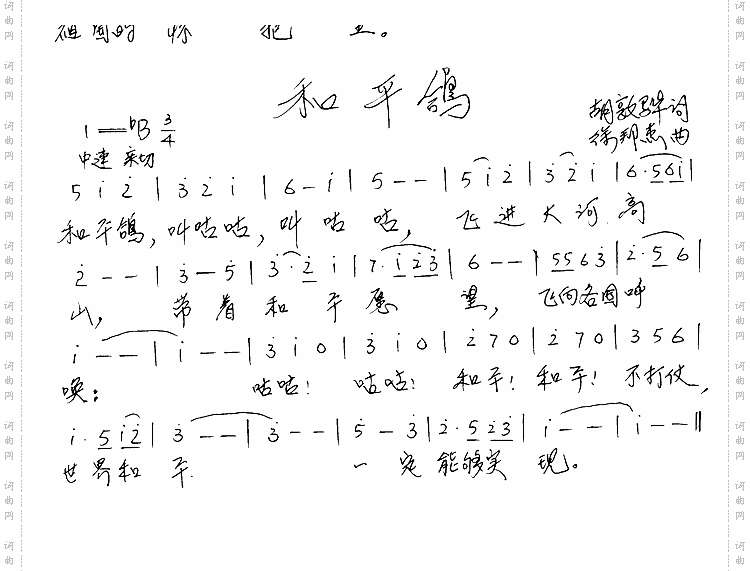 祖国的 怀 抱 上。
和平鸽
胡敦骅词
1=♭B 3/4
徐邦杰曲
中速 亲切
5 i̇ 2̇ | 3̇ 2̇ i̇ | 6 - i̇ | 5 - - | 5 i̇ 2̇ | 3̇ 2̇ i̇ | 6 · 5 6 i̇ |
和平鸽,叫咕咕,叫咕咕, 飞进大河高
2̇ - - | 3̇ - 5̇ | 3̇ · 2̇ i̇ | 7 · i̇ 2̇ 3̇ | 6 - - | 5 5 6 3̇ | 2̇ · 5 6 |
山, 带着和平愿 望, 飞向各国呼
i̇ - - | i̇ - - | 3̇ i̇ 0 | 3̇ i̇ 0 | 2̇ 7 0 | 2̇ 7 0 | 3 5 6 |
唤: 咕咕! 咕咕! 和平! 和平! 不打仗,
i̇ · 5 i̇ 2̇ | 3̇ - - | 3̇ - - | 5̇ - 3̇ | 2̇ · 5 2̇ 3̇ | i̇ - - | i̇ - - ‖
世界和平 一定能够实现。
词曲网
词曲网
词曲网
词曲网
词曲网
词曲网
词曲网
词曲网
词曲网
词曲网